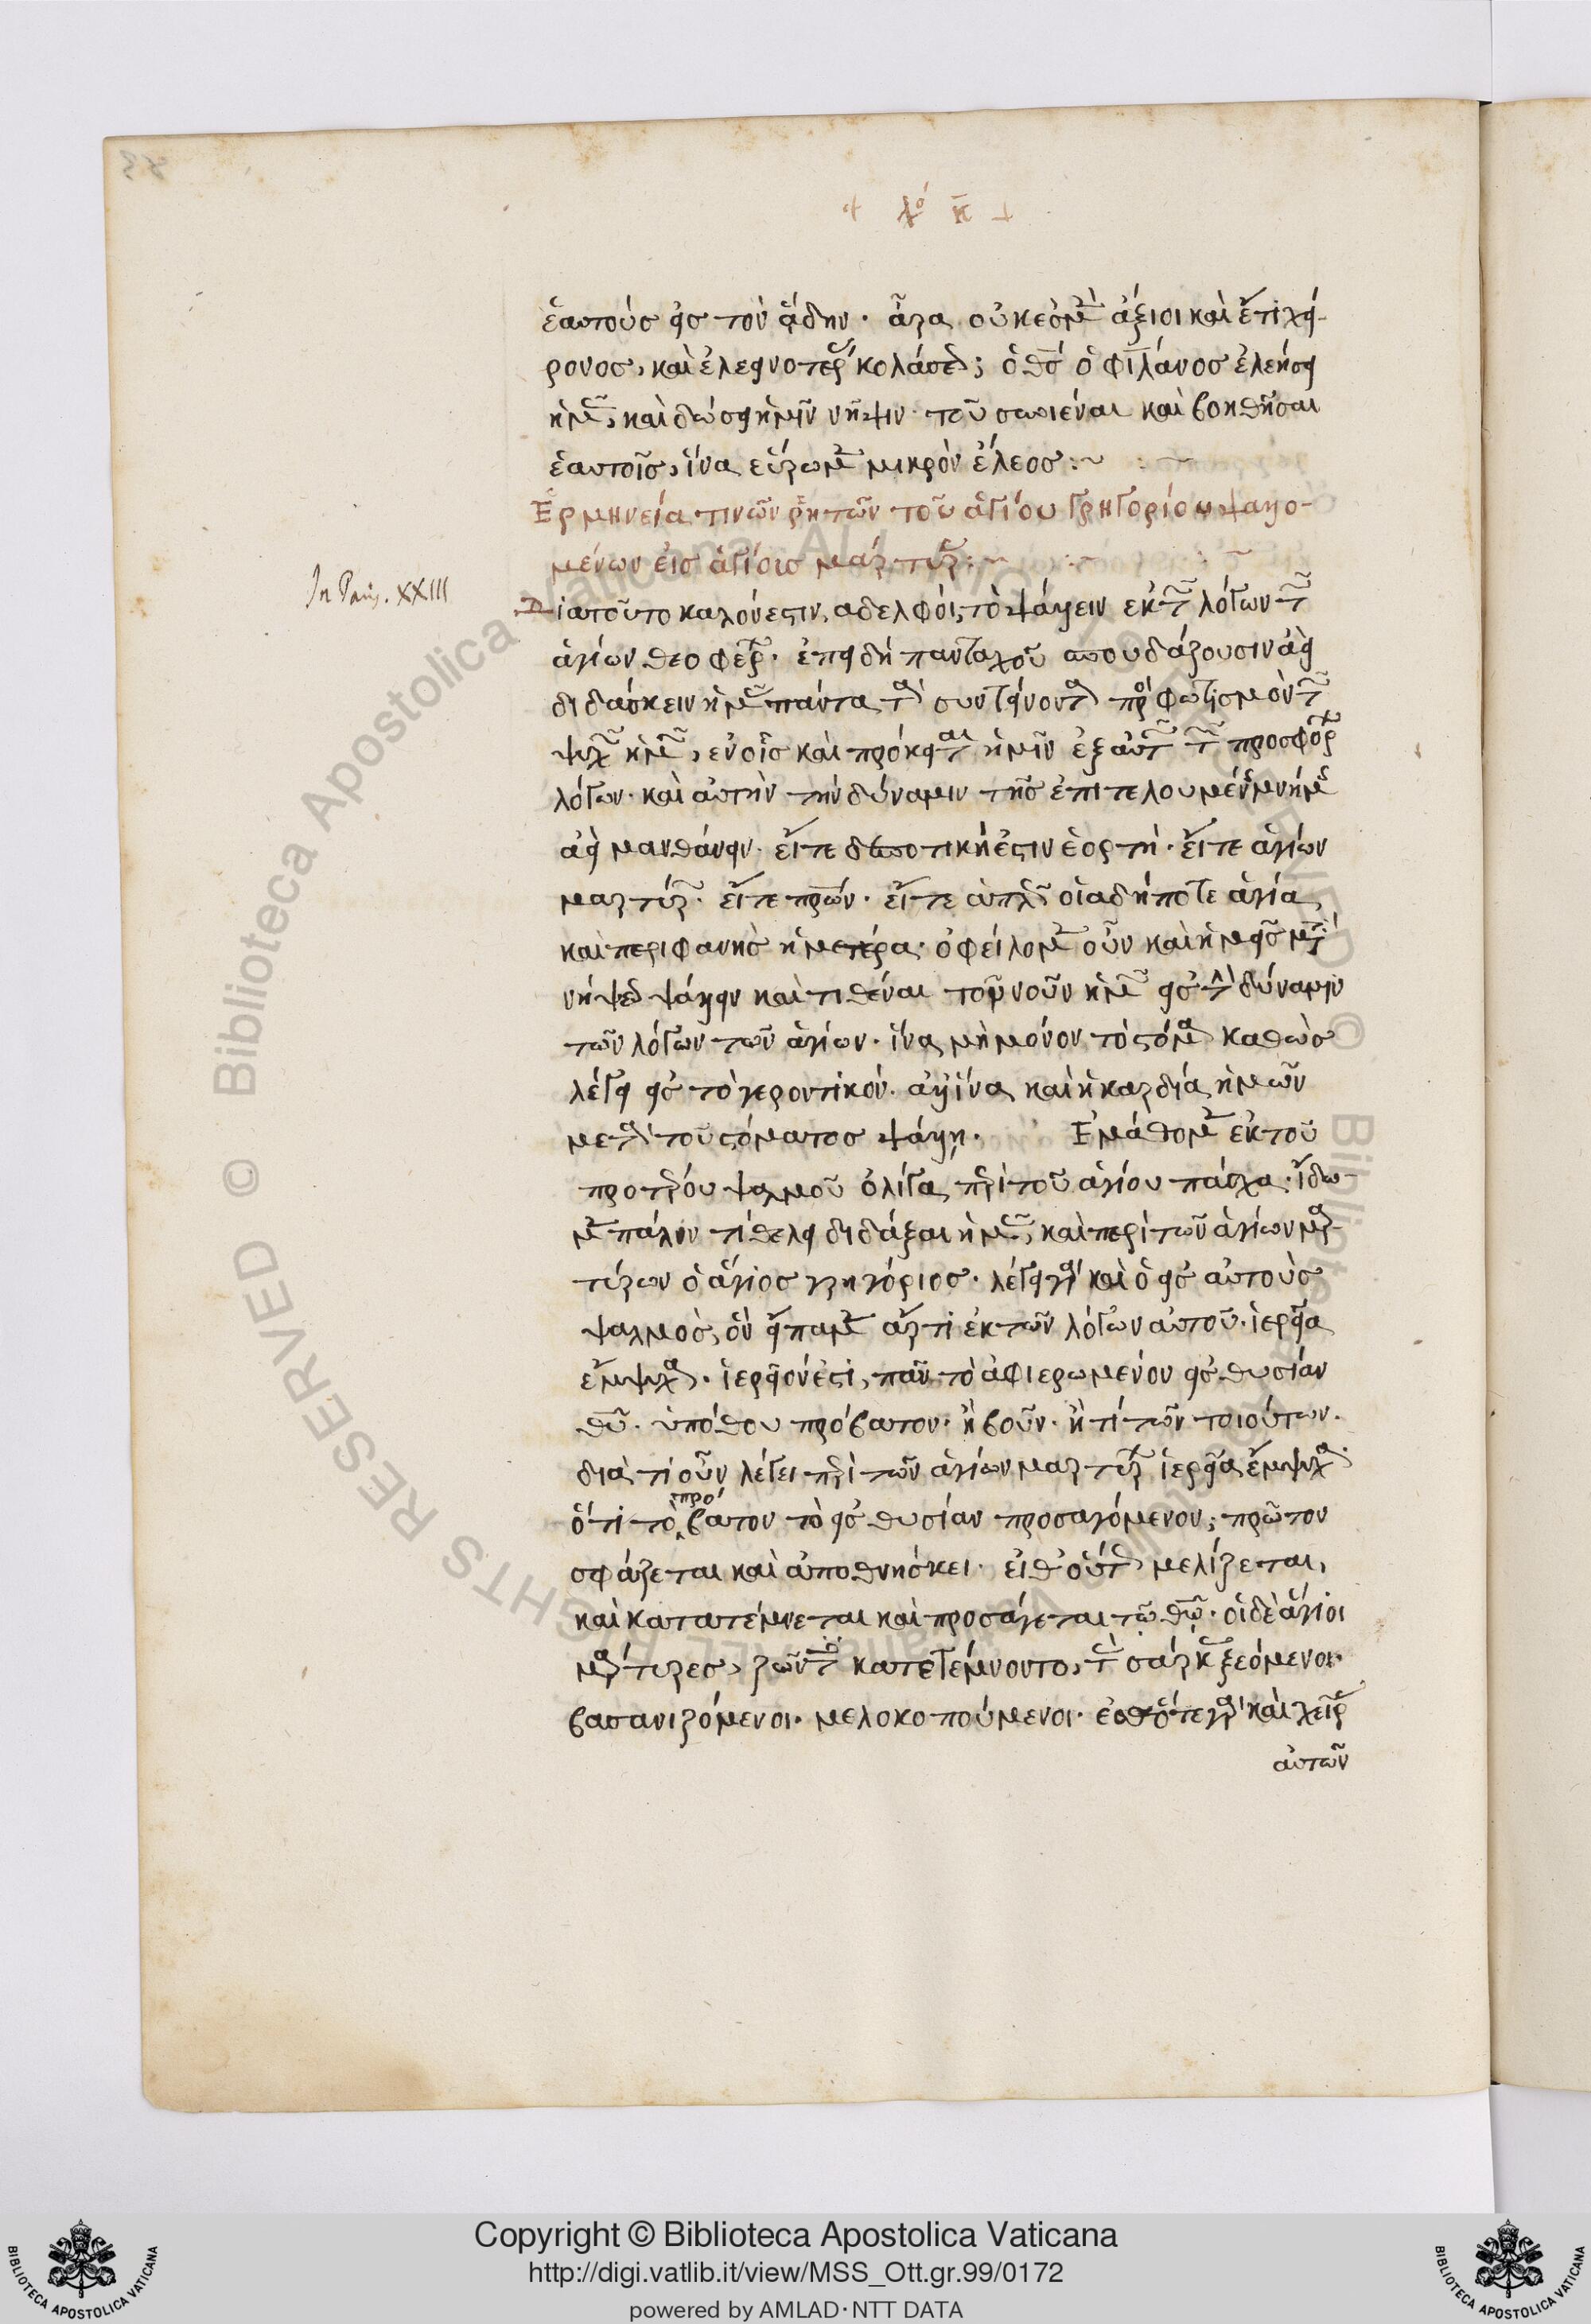 λό κ
ἑαυτοὺς εἰς τὸν ἅδην. ἆρα οὐκ ἐσμὲν ἄξιοι καὶ ἔτι χεί-
ρονος, καὶ ἐλεεινοτέρας κολάσεως; ὁ θς ὁ φιλάνος ἐλεήσει
ἡμᾶς, καὶ δώσει ἡμῖν νῆψιν τοῦ συνιέναι καὶ βοηθῆσαι
ἑαυτοῖς, ἵνα εὕρωμεν μικρὸν ἔλεος :~
Ἑρμηνεία τινῶν ῥητῶν τοῦ ἁγίου Γρηγορίου ψαλλο-
μένων εἰς ἁγίους μάρτυρας :~
In Pain. XXIII
Διατοῦτο καλόν ἐστιν, ἀδελφοί, τὸ ψάλλειν ἐκ τῶν λόγων τῶν
ἁγίων θεοφόρων. ἐπειδὴ πανταχοῦ σπουδάζουσιν ἀεὶ
διδάσκειν ἡμᾶς πάντα τὰ συντείνοντα πρὸς φωτισμὸν τῶν
ψυχῶν ἡμῶν, ἐν οἷς καὶ πρόκειται ἡμῖν ἐξ αὐτῶν τῶν προσφόρων
λόγων. καὶ αὐτὴν τὴν δύναμιν τῆς ἐπιτελουμένης μνήμης
ἀεὶ μανθάνειν. εἴτε δεσποτική ἐστιν ἑορτή. εἴτε ἁγίων
μαρτύρων. εἴτε πρων. εἴτε ἁπλῶς οἱαδήποτε ἁγία
καὶ περιφανὴς ἡμετέρα. ὀφείλομεν οὖν καὶ ἡμεῖς μετὰ
νήψεως ψάλλειν καὶ τιθέναι τὸν νοῦν ἡμῶν εἰς τὴν δύναμιν
τῶν λόγων τῶν ἁγίων. ἵνα μὴ μόνον τὸ στόμα καθὼς
λέγει εἰς τὸ γεροντικόν. ἀλλ' ἵνα καὶ ἡ καρδία ἡμῶν
μετὰ τοῦ στόματος ψάλλῃ. Ἐμάθομεν ἐκ τοῦ
προτέρου ψαλμοῦ ὀλίγα περὶ τοῦ ἁγίου πάσχα. ἴδω-
μεν πάλιν τί θέλει διδάξαι ἡμᾶς, καὶ περὶ τῶν ἁγίων μαρ-
τύρων ὁ ἅγιος γρηγόριος. λέγει γὰρ καὶ ὁ εἰς αὐτοὺς
ψαλμὸς, ὃν εἴπαμεν ἄρτι ἐκ τῶν λόγων αὐτοῦ. ἱερεῖα
ἔμψυχα. ἱερεῖόν ἐστι, πᾶν τὸ ἀφιερωμένον εἰς θυσίαν
θῦ. ὑπόθου πρόβατον. ἢ βοῦν. ἤ τι τῶν τοιούτων.
διὰ τί οὖν λέγει περὶ τῶν ἁγίων μαρτύρων ἱερεῖα ἔμψυχα.
ὅτι τὸ πρόβατον τὸ εἰς θυσίαν προσαγόμενον; πρῶτον
σφάζεται καὶ ἀποθνήσκει. εἶθ' οὕτως μελίζεται,
καὶ κατατέμνεται καὶ προσάγεται τῷ θῷ. οἱ δὲ ἅγιοι
μάρτυρες, ζῶντες κατετέμνοντο, τὰς σάρκας ξεόμενοι.
βασανιζόμενοι. μελοκοπούμενοι. ἔσθ' ὅτε γὰρ καὶ χεῖρες
αὐτῶν